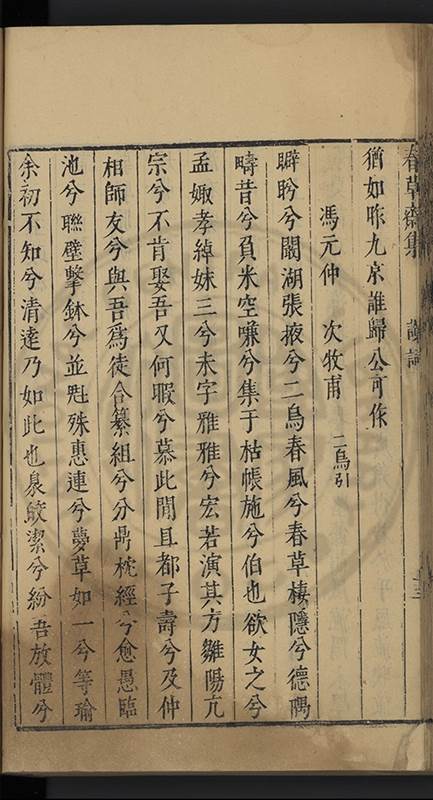 春草齋集
猶如昨九京誰歸公可作
馮元仲 次牧甫 二烏引
睜盼兮闞湖張掖兮二烏春風兮春草棲隱兮德隅
疇昔兮負米空嗛兮集于枯帳施兮伯也欲女之兮
孟娵孝綽妹三兮未字雅雅兮宏若演其方雒陽亢
宗兮不肯娶吾又何暇兮慕此閒且都子壽兮及仲
相師友兮與吾爲徒合纂組兮分鼎枕經兮愈愚臨
池兮聯璧擊鉢兮並魁殊惠連兮夢草如一兮等瑜
余初不知兮清達乃如此也泉皎潔兮紛吾放體兮